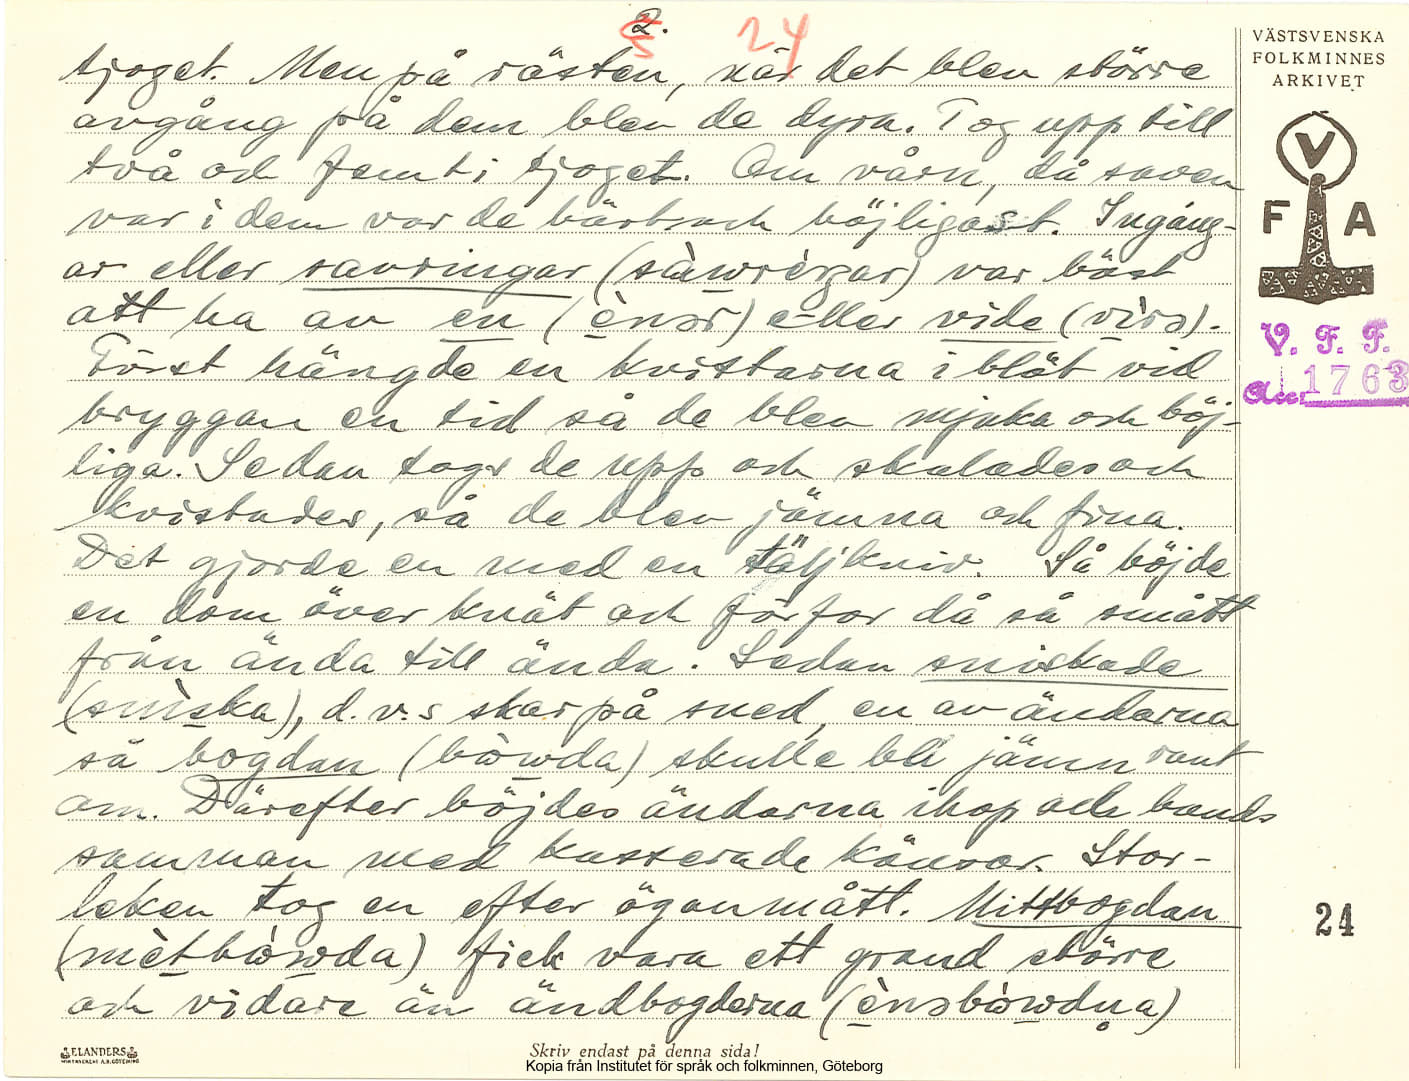 2. 24
VÄSTSVENSKA
FOLKMINNES
ARKIVET
V
F A
V. F. F.
Acc: 1763
24
tjoget. Men på rästen, när det blev större
avgång på dem blev de dyra. Tog upp till
två och femti tjoget. Om vårn, då saven
var i dem var de bäst och böjligast. Ingång-
ar eller savringar (sàwrèŋar) var bäst
att ha av en (ènər) eller vide (vìrə).
Först hängde en kvistarna i blöt vid
bryggan en tid så de blev mjuka och böj-
liga. Sedan togs de upp och skalades och
kvistades, så de blev jämna och fina.
Det gjorde en med en täljkniv. Så böjde
en dom över knät och förfor då så smått
från ända till ända. Sedan sniskade
(snìska), d.v.s skar på sned, en av ändarna
så bogdan (bòwda) skulle bli jämn runt
om. Därefter böjdes ändarna ihop och bands
samman med kasserade könsor. Stor-
leken tog en efter ögonmått. Mittbogdan
(mètbòwda) fick vara ett grand större
och vidare än ändbogderna (ènsbòwdṇa)
ELANDERS
Skriv endast på denna sida!
Kopia från Institutet för språk och folkminnen, Göteborg